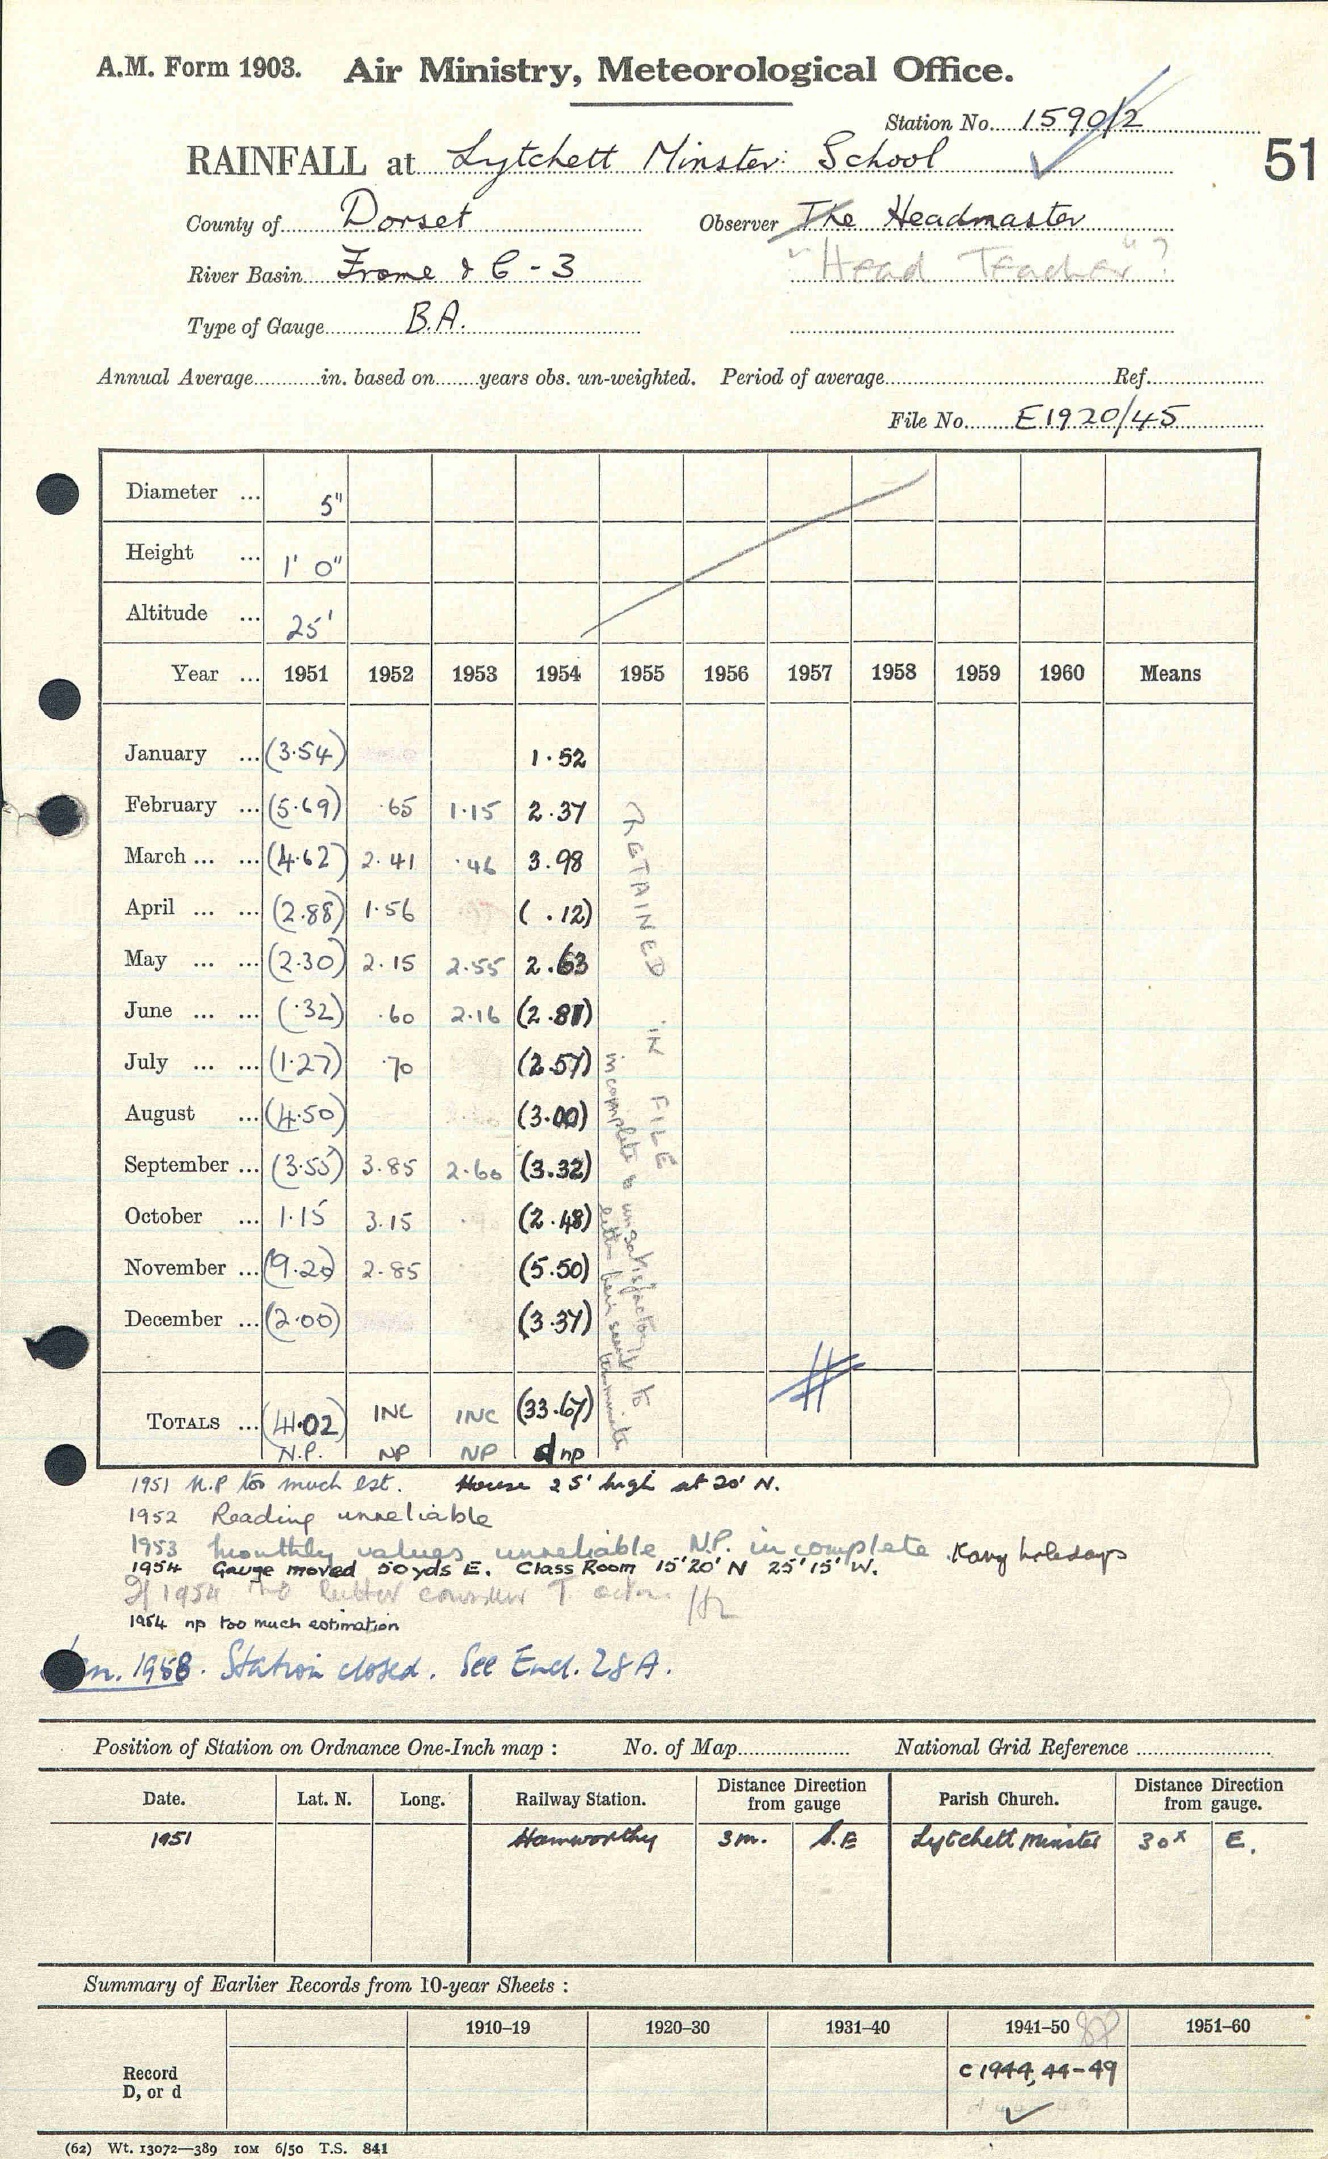 A.M. Form 1903. Air Ministry, Meteorological Office.
Station No. 1590/2
51
RAINFALL at Lytchett Minster: School
County of Dorset Observer The Headmaster
River Basin Frome & C - 3 "Head Teacher"?
Type of Gauge B.A.
Annual Average in. based on years obs. un-weighted. Period of average Ref.
File No. E1920/45
Diameter ... 5"
Height ... 1' 0"
Altitude ... 25'
Year ... 1951 1952 1953 1954 1955 1956 1957 1958 1959 1960 Means
January ... (3.54) 1.52
February ... (5.69) .65 1.15 2.37
March ... ... (4.62) 2.41 .46 3.98
April ... ... (2.88) 1.56 ( .12)
May ... ... (2.30) 2.15 2.55 2.63
June ... ... (.32) .60 2.16 (2.81)
July ... ... (1.27) .70 (2.57)
August ... (4.50) (3.00)
September ... (3.55) 3.85 2.60 (3.32)
October ... 1.15 3.15 (2.48)
November ... (9.20) 2.85 (5.50)
December ... (2.00) (3.37)
RETAINED IN FILE
incomplete & unsatisfactory
letter been sent to terminate
TOTALS ... (41.02) INC INC (33.67)
N.P. NP NP d np
1951 N.P too much est. House 25' high at 20' N.
1952 Reading unreliable
1953 Monthly values unreliable N.P. incomplete. Many holidays
1954 Gauge moved 50yds E. Class Room 15'20' N 25'15' W.
If 1954 no better consider T.
1954 np too much estimation
n. 1958. Station closed. See Encl. 28A.
Position of Station on Ordnance One-Inch map : No. of Map National Grid Reference
Date. Lat. N. Long. Railway Station. Distance Direction from gauge Parish Church. Distance Direction from gauge.
1951 Hamworthy 3m. S.E Lytchett Minster 30x E.
Summary of Earlier Records from 10-year Sheets :
1910–19 1920–30 1931–40 1941–50 1951–60
Record
D, or d
C 1944, 44-49
(62) Wt. 13072—389 10M 6/50 T.S. 841